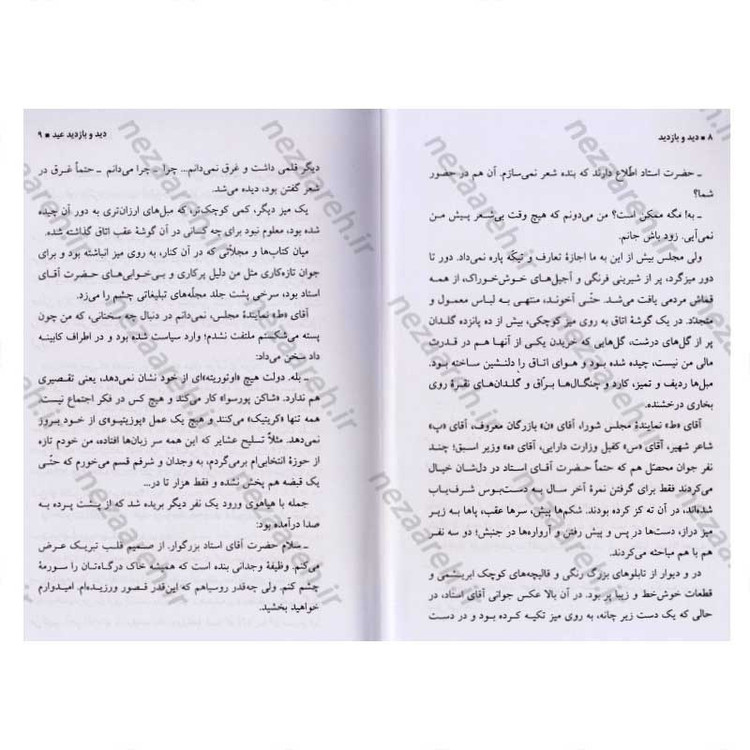 ۸ ■ دید و بازدید
ـ حضرت استاد اطّلاع دارند که بنده شعر نمی‌سازم. آن هم در حضور
شما؟
ـ به! مگه ممکن است؟ من می‌دونم که هیچ وقت بی‌شعر پیش من
نمی‌آیی. زود باش جانم.
ولی مجلس بیش از این به ما اجازهٔ تعارف و تیکّه پاره نمی‌داد. دور تا
دور میزگرد، پر از شیرینی فرنگی و آجیل‌های خوش‌خوراک، از همه
قماش مردمی یافت می‌شد. حتّی آخوند، منتهی به لباس معمول و
متجدّد. در یک گوشهٔ اتاق به روی میز کوچکی، بیش از ده پانزده گلدان
پر از گل‌های درشت، گل‌هایی که خریدن یکی از آنها هم در قدرت
مالی من نیست، چیده شده بود و هوای اتاق را دلنشین ساخته بود.
مبل‌ها ردیف و تمیز، کارد و چنگال‌ها برّاق و گلدان‌های نقرهٔ روی
بخاری درخشنده.
آقای «ط» نمایندهٔ مجلس شورا، آقای «ن» بازرگان معروف، آقای «پ»
شاعر شهیر، آقای «س» کفیل وزارت دارایی، آقای «ه» وزیر اسبق؛ چند
نفر جوان محصّل هم که حتماً حضرت آقای استاد در دل‌شان خیال
می‌کردند فقط برای گرفتن نمرهٔ آخر سال به دست‌بوس شرف‌یاب
شده‌اند، در آن ته کز کرده بودند. شکم‌ها پیش، سرها عقب، پاها به زیر
میز دراز، دست‌ها در پس و پیش رفتن و آرواره‌ها در جنبش؛ دو سه نفر
هم با هم مباحثه می‌کردند.
در و دیوار از تابلوهای بزرگ رنگی و قالیچه‌های کوچک ابریشمی و
قطعات خوش‌خط و زیبا پر بود. در آن بالا عکس جوانی آقای استاد، در
حالی که یک دست زیر چانه، به روی میز تکیه کرده بود و در دست
دید و بازدید عید ■ ۹
دیگر قلمی داشت و غرق نمی‌دانم... چرا ـ چرا می‌دانم ـ حتماً غرق در
شعر گفتن بود، دیده می‌شد.
یک میز دیگر، کمی کوچک‌تر، که مبل‌های ارزان‌تری به دور آن چیده
شده بود، معلوم نبود برای چه کسانی در آن گوشهٔ عقب اتاق گذاشته شده.
میان کتاب‌ها و مجلّاتی که در آن کنار، به روی میز انباشته بود و برای
جوان تازه‌کاری مثل من دلیل پرکاری و بی‌خوابی‌های حضرت آقای
استاد بود، سرخی پشت جلد مجلّه‌های تبلیغاتی چشم را می‌زد.
آقای «ط» نمایندهٔ مجلس، نمی‌دانم در دنبال چه سخنانی، که من چون
پسته می‌شکستم ملتفت نشدم؛ وارد سیاست شده بود و در اطراف کابینه
داد سخن می‌داد:
ـ بله. دولت هیچ «اوتوریته»ای از خود نشان نمی‌دهد، یعنی تقصیری
هم ندارد. «شاکن پورسوا» کار می‌کند و هیچ کس در فکر اجتماع نیست.
همه تنها «کریتیک» می‌کنند و هیچ یک عمل «پوزیتیو»ی از خود بروز
نمی‌دهد. مثلاً تسلیح عشایر که این همه سر زبان‌ها افتاده، من خودم تازه
از حوزهٔ انتخابی‌ام برمی‌گردم، به وجدان و شرفم قسم می‌خورم که حتّی
یک قبضه هم پخش نشده و فقط هزار تا در...
جمله با هیاهوی ورود یک نفر دیگر بریده شد که از پشت پرده به
صدا درآمده بود:
ـ سلام حضرت آقای استاد بزرگوار. از صمیم قلب تبریک عرض
می‌کنم. وظیفهٔ وجدانی بنده است که همیشه خاک درگاه‌تان را سورمهٔ
چشم کنم. ولی چه‌قدر روسیاهم که این‌قدر قصور ورزیده‌ام. امیدوارم
خواهید بخشید.
nezaareh.ir
nezaareh.ir
nezaareh.ir
nezaareh.ir
nezaareh.ir
nezaareh.ir
nezaareh.ir